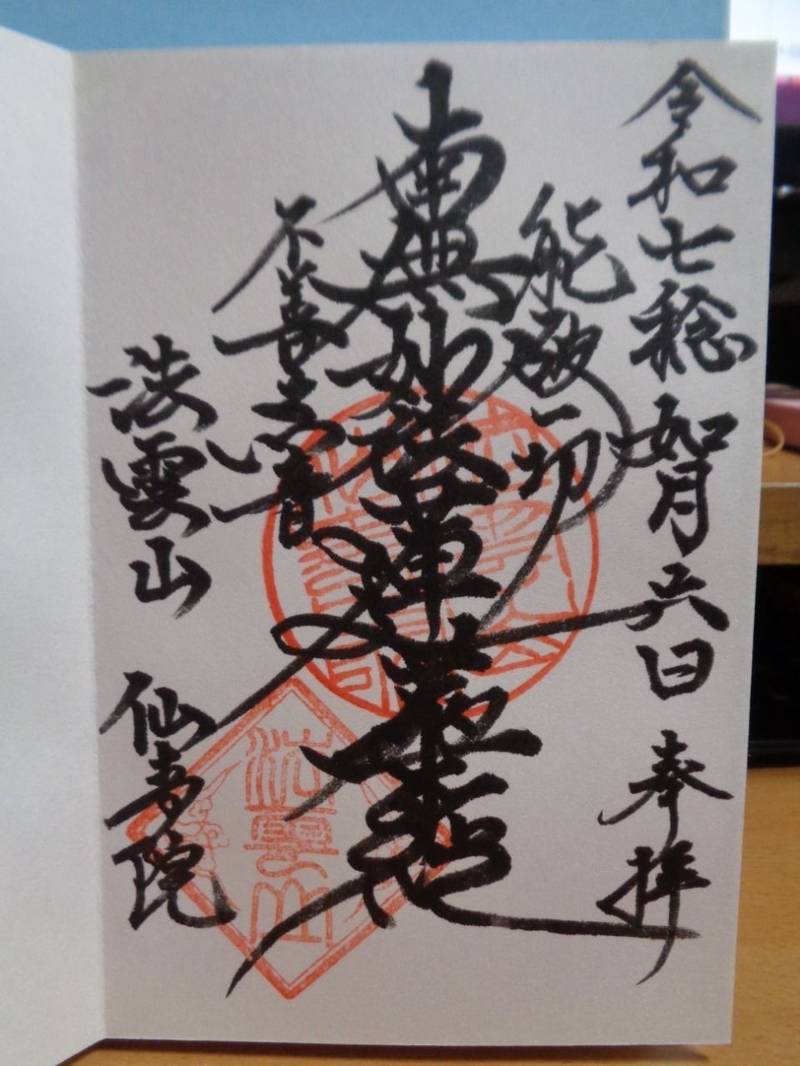 令和七稔如月六日 奉拝
能破一切
南無妙法蓮華経
不善之闇
法雲山 仙寿院
法雲山